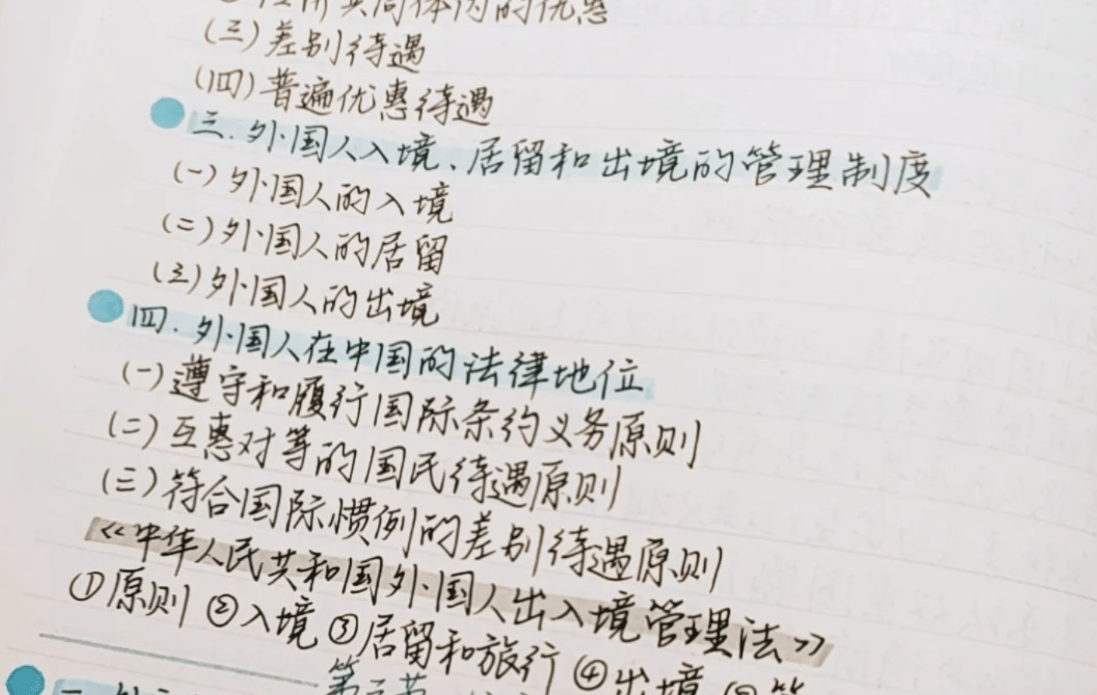 共同体内的优惠
(三)差别待遇
(四)普遍优惠待遇
三.外国人入境、居留和出境的管理制度
(一)外国人的入境
(二)外国人的居留
(三)外国人的出境
四.外国人在中国的法律地位
(一)遵守和履行国际条约义务原则
(二)互惠对等的国民待遇原则
(三)符合国际惯例的差别待遇原则
《中华人民共和国外国人出入境管理法》
①原则 ②入境 ③居留和旅行 ④出境